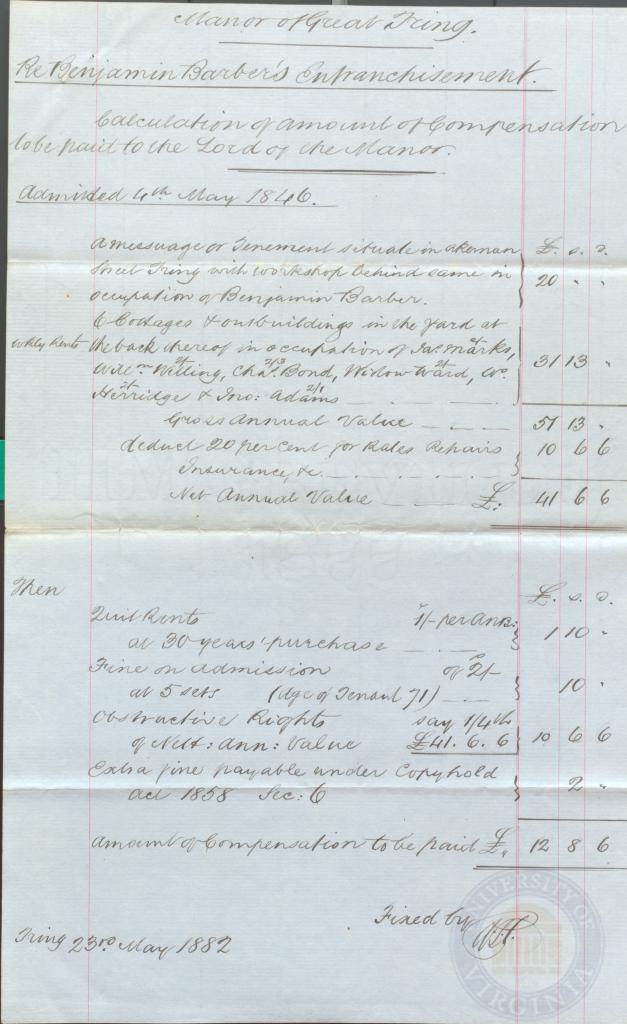 Manor of Great Tring.
Re Benjamin Barber's Enfranchisement.
Calculation of amount of Compensation
to be paid to the Lord of the Manor.
Admitted 4th May 1846.
A messuage or Tenement situate in Akeman £. s. d.
Street Tring with workshop behind same in
occupation of Benjamin Barber. } 20 " "
6 Cottages & outbuildings in the yard at
Wkly Rents the back thereof in occupation of Jas Marks, 2/-
Willm Welling, 2/- Chas. Bond, 2/3 Widow Ward, 2/- Wm } 31 13 "
Herridge 2/- & Jno: Adams 2/1
Gross Annual Value 51 13 "
deduct 20 per cent for Rates Repairs
Insurance, &c. } 10 6 6
Net Annual Value £. 41 6 6
Then £. s. d.
Quit Rents 1/- per Ann:
at 30 years' purchase } 1 10 "
Fine on admission of 2/-
at 5 sets (Age of Tenant 71) } 10 "
Obstructive Rights say 1/4th
of Nett: Ann: Value £41. 6. 6 } 10 6 6
Extra fine payable under Copyhold
Act 1858 Sec: 6 } 2 "
Amount of Compensation to be paid £. 12 8 6
Fixed by
Tring 23rd May 1882
UNIVERSITY OF VIRGINIA